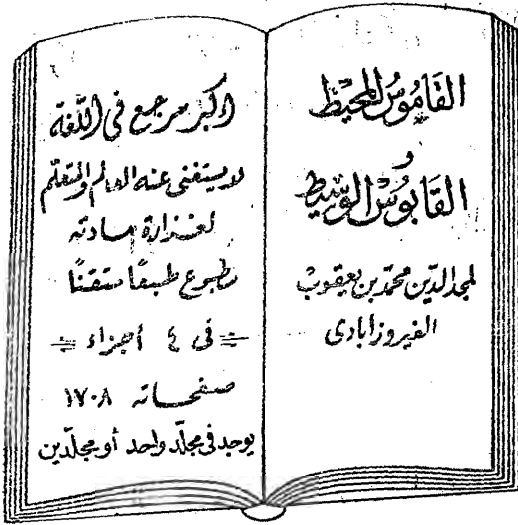 القَامُوسُ المحيط
و
القَابُوسُ الوَسِيط
لمجد الدّين محمّد بن يعقوب
الفيروزابادى
اكبر مرجع فى اللّغة
لا يستغنى عنه العالم والمتعلّم
لغزارة مادته
مطبوع طبعًا متقنًا
فى ٤ أجزاء
صفحاته ١٧٠٨
يوجد فى مجلّد واحد أو مجلّدين